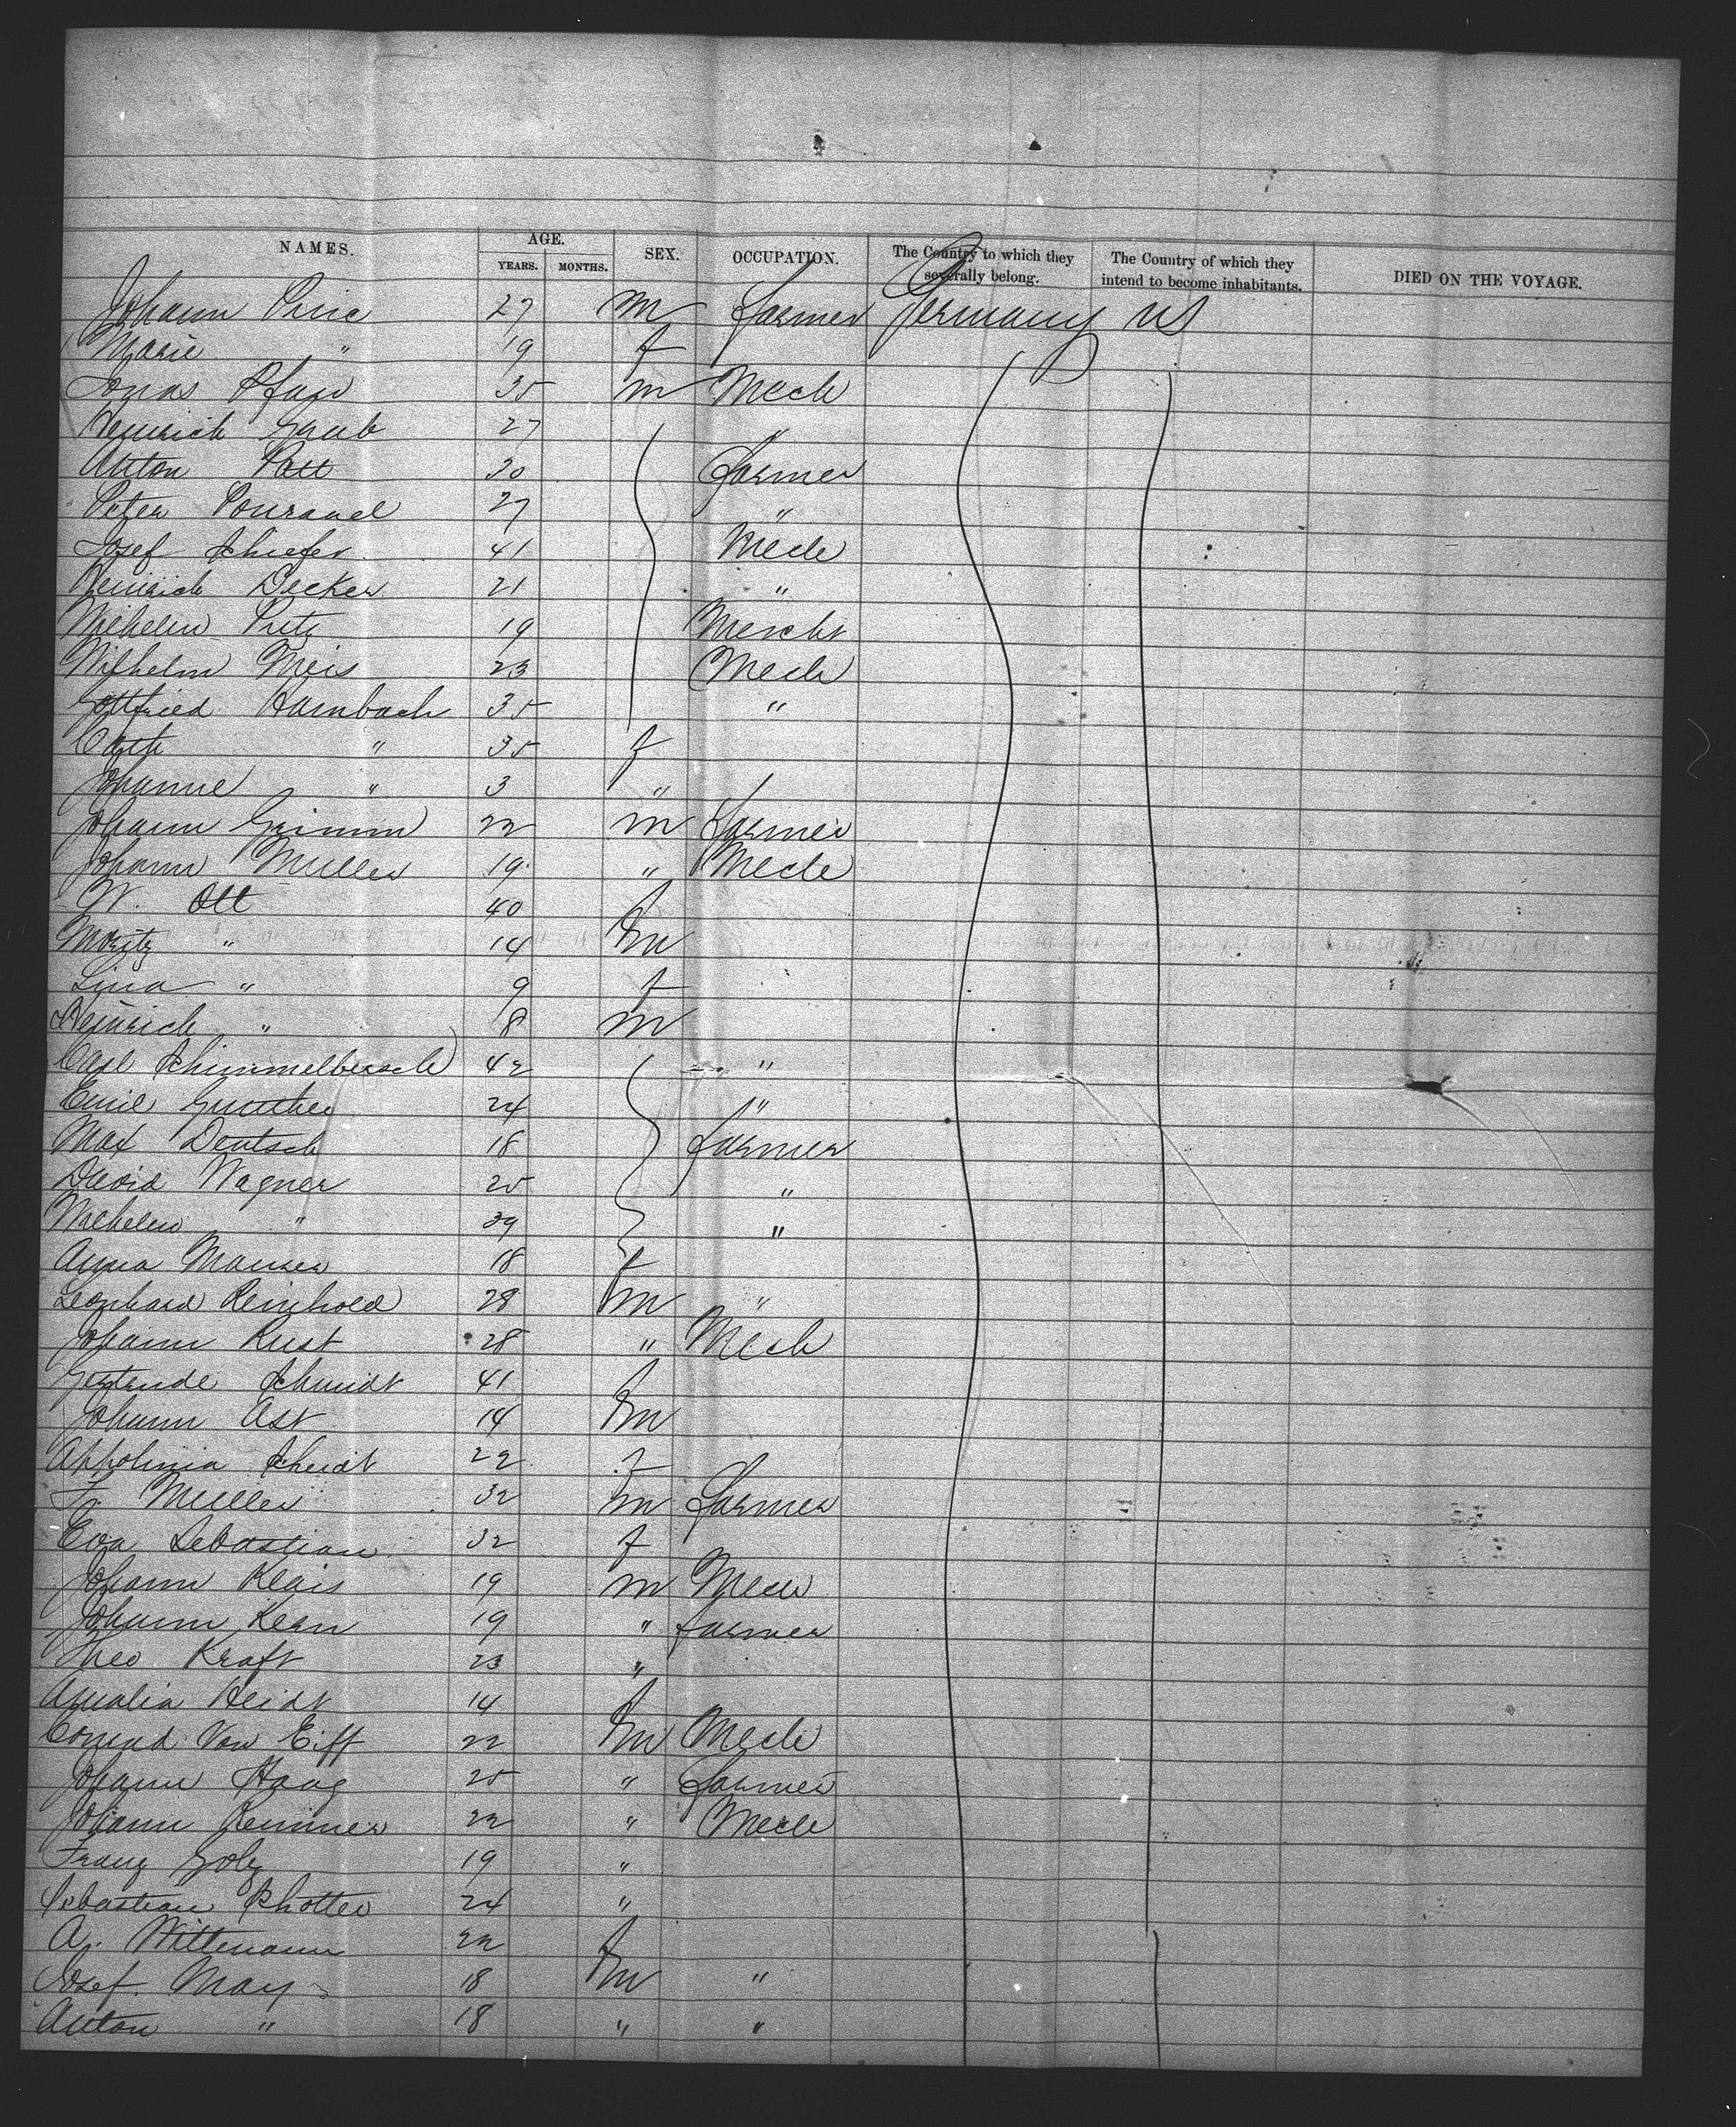 NAMES. AGE. YEARS. MONTHS. SEX. OCCUPATION. The Country to which they severally belong. The Country of which they intend to become inhabitants. DIED ON THE VOYAGE.
Johann 27 m Farmer Germany US
Marie " 19 f
Jonas 35 m Mech
Heinrich Graub 27 "
Anton Patt 30 Farmer
Peter 27 "
Josef Schiefer 41 Mech
Heinrich Decker 21 "
Wilhelm 19 Mercht
Wilhelm Meis 23 Mech
Gottfried Hambach 35 "
Cath " 35 f
Johanne " 3 "
Johann Grimm 22 m Farmer
Johann Muller 19 " Mech
W. Ott 40 f
Moritz " 14 m
Lina " 9 f
Heinrich " 8 m
Carl 42 "
Emil Gunther 24 "
Max Deutsch 18 Farmer
David Wagner 25 "
Wilhelm " 39 "
Anna Manser 18 f
Leonhard Reinhold 28 m "
Johann Rust 28 " Mech
Gertrude Schmidt 41 f
Johann Ast 14 m
Appolinia Scheidt 22 f
F. Muller 32 m Farmer
Eva Sebastian 32 f
Johann Klais 19 m Mech
Johann Kern 19 " Farmer
Theo Kraft 23 "
Amalia Heidt 14 f
Conrad Von Eiff 22 m Mech
Johann Haag 25 " Farmer
Johann Remmer 22 " Mech
Franz Golz 19 "
Sebastian Schotter 24 "
A. Wittemann 22 f
Josef May 18 m "
Anton " 18 " "